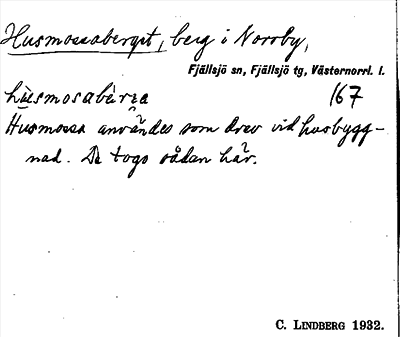 Husmossaberget, berg i Norrby,
Fjällsjö sn, Fjällsjö tg, Västernorrl. l.
husmosabärra 167
Husmossa användes som drev vid husbygg-
nad. De togo sådan här.
C. LINDBERG 1932.